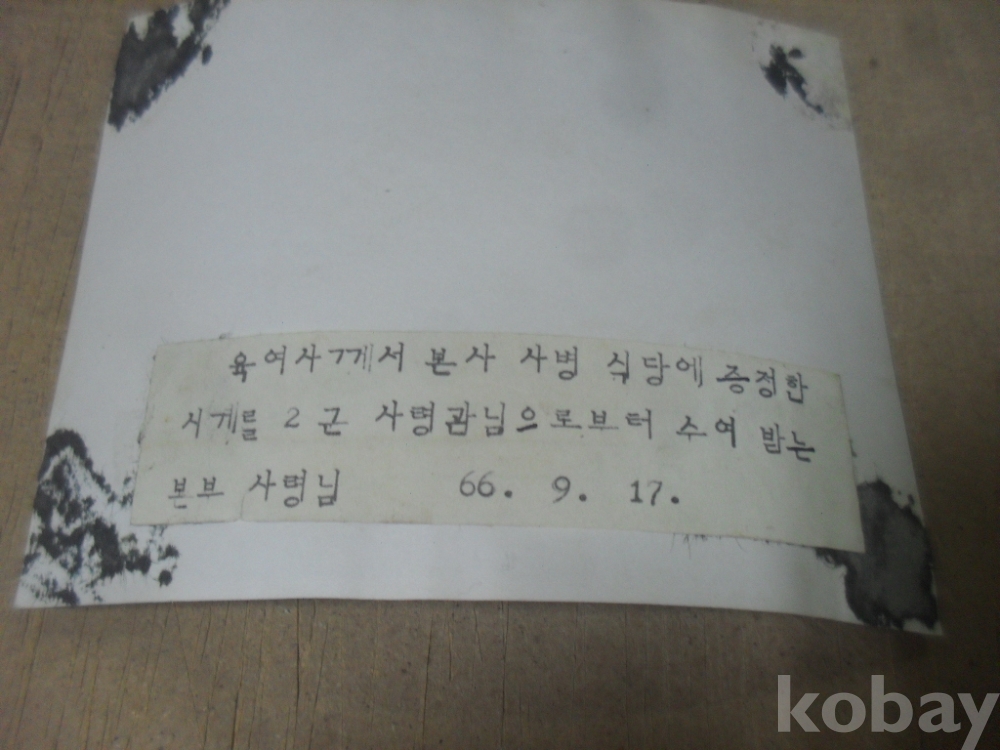 육여사께서 본사 사병 식당에 증정한
시계를 2군 사령관님으로부터 수여 받는
본부 사령님 66. 9. 17.
kobay